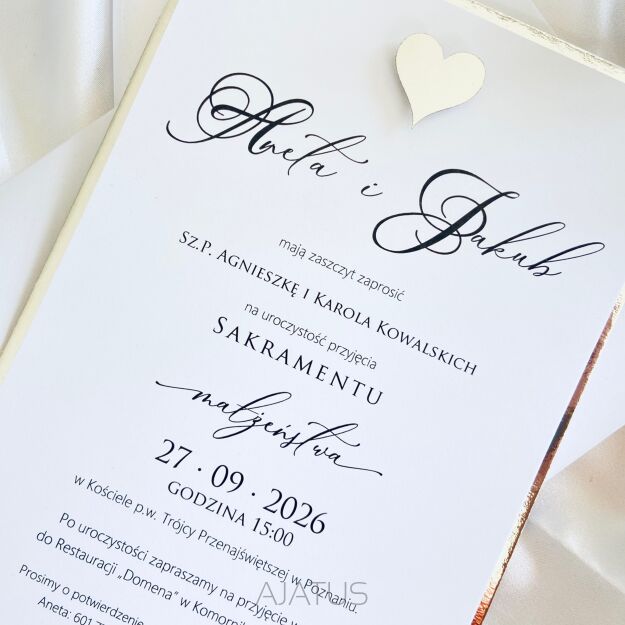 Aneta i Jakub
mają zaszczyt zaprosić
Sz.P. Agnieszkę i Karola Kowalskich
na uroczystość przyjęcia
SAKRAMENTU
małżeństwa
27 · 09 · 2026
GODZINA 15:00
w Kościele p.w. Trójcy Przenajświętszej w Poznaniu.
Po uroczystości zapraszamy na przyjęcie w
do Restauracji „Domena” w Komorni
Prosimy o potwierdzenie
Aneta: 601 7
AJATUS